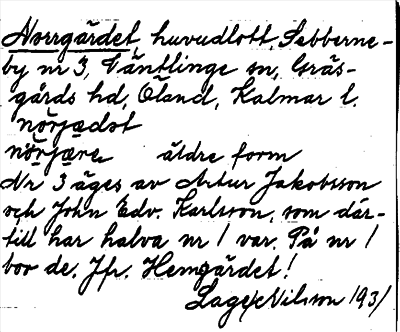 Norrgärdet, huvudlott, Sebberne-
by nr 3, Väntlinge sn, Gräs-
gårds hd, Öland, Kalmar l.
nörjadət
nörjære äldre form
Nr 3 äges av Artur Jakobsson
och John Edv. Karlsson, som där-
till har halva nr 1 var. På nr 1
bor de. Jfr. Hemgärdet!
Lage Nilsson 1931